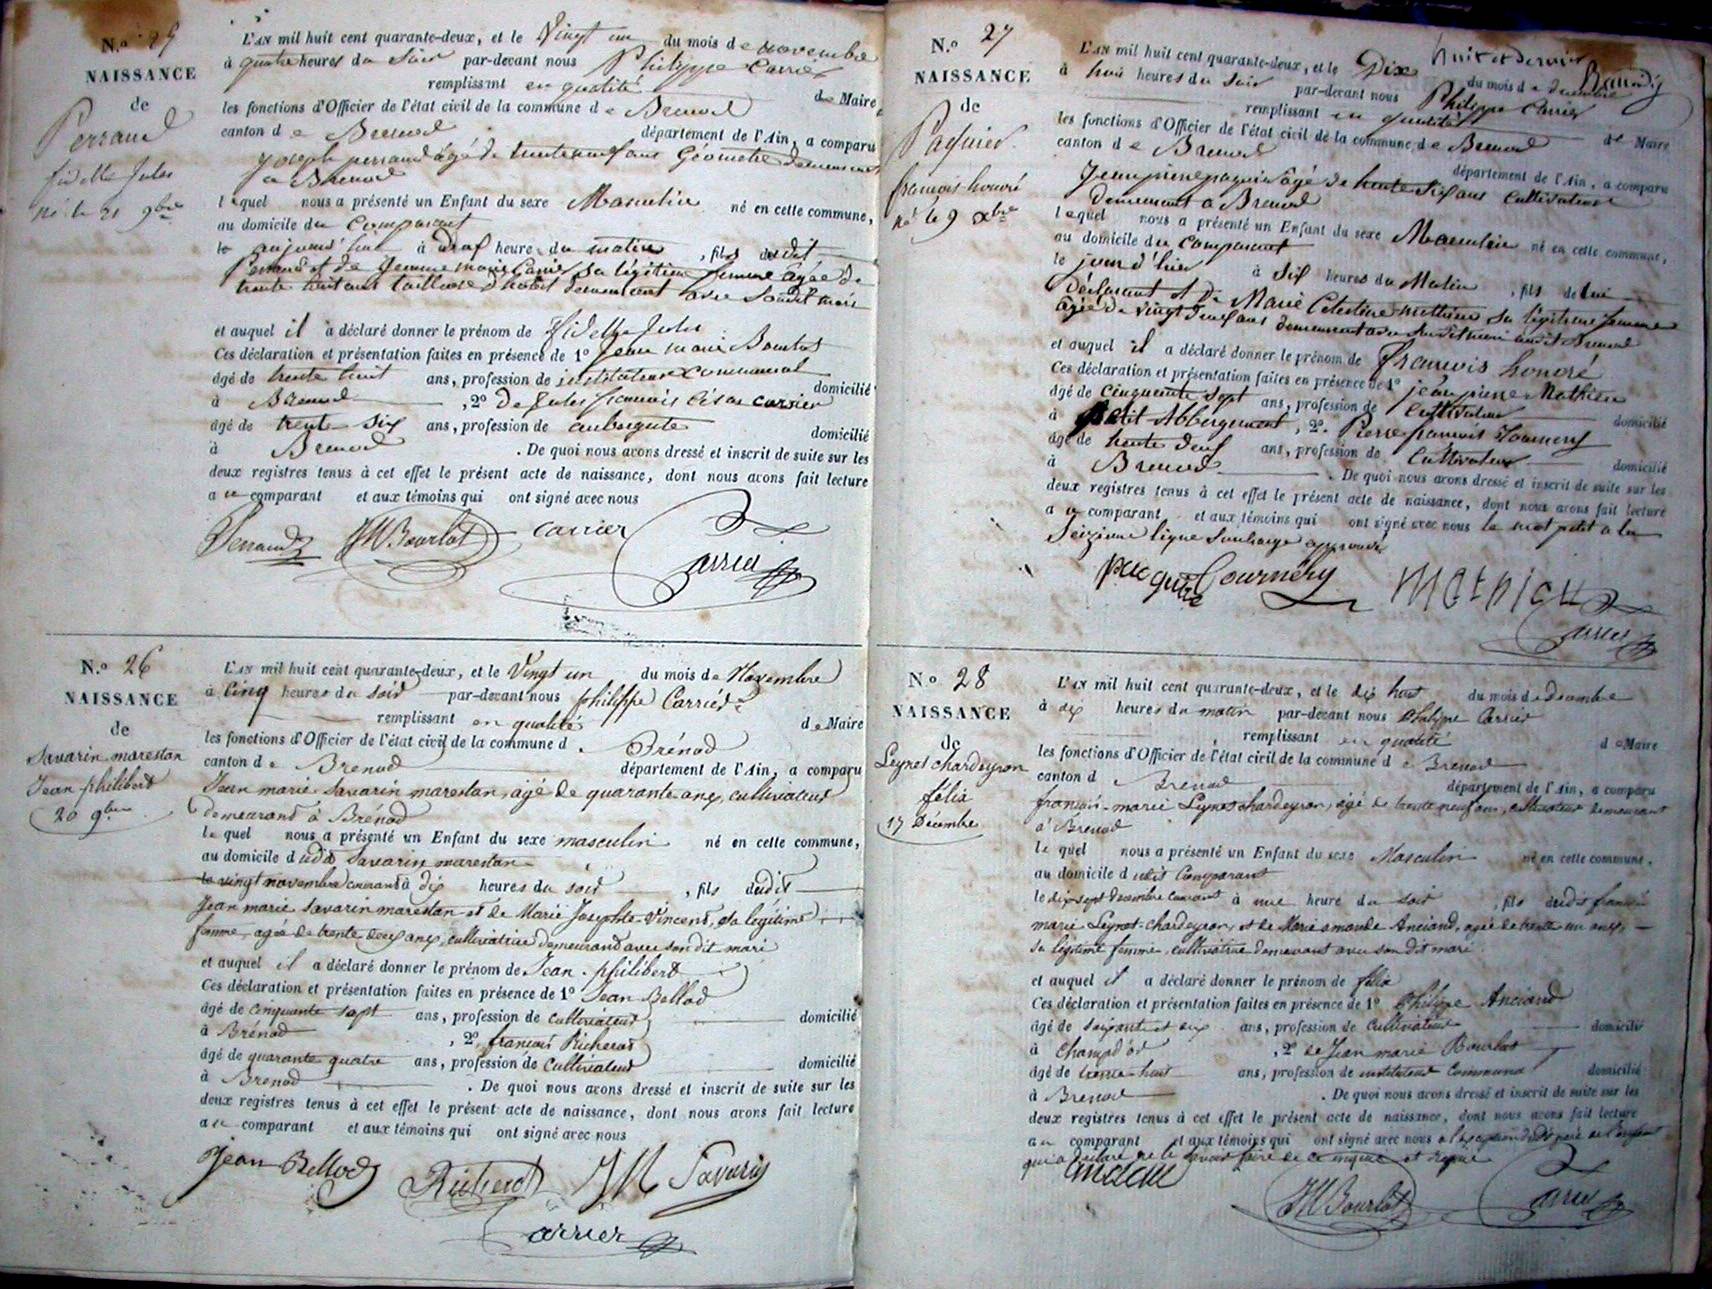 N.o 25
NAISSANCE
de
Perraud
fidelle Jules
né le 21 9bre
L'AN mil huit cent quarante-deux, et le Vingt un du mois de novembre
à quatre heures du Soir par-devant nous Philippe Carrier
remplissant en qualité de Maire
les fonctions d'Officier de l'état civil de la commune d e Brenod
canton d e Brenod département de l'Ain, a comparu
Joseph perraud âgé de trente neuf ans Géometre demeurant
a Brenod
lequel nous a présenté un Enfant du sexe Masculin né en cette commune,
au domicile du Comparant
le aujourd'hui à neuf heure du matin, fils dudit
Perraud et de Jemme marie Carrier sa légitime femme âgée de
trente huit ans tailleuse d'habit demeurant avec sondit mari
et auquel il a déclaré donner le prénom de fidelle Jules
Ces déclaration et présentation faites en présence de 1º Jean marie Bourlot
âgé de trente huit ans, profession de instituteur communal domicilié
à Brenod, 2º de Jules francois César carrier
âgé de trente six ans, profession de aubergiste domicilié
à Brenod. De quoi nous avons dressé et inscrit de suite sur les
deux registres tenus à cet effet le présent acte de naissance, dont nous avons fait lecture
au comparant et aux témoins qui ont signé avec nous
Perraud JM Bourlot carrier Carrier
N.o 26
NAISSANCE
de
Savarin marestan
Jean philibert
20 9bre
L'AN mil huit cent quarante-deux, et le Vingt un du mois de Novembre
à Cinq heures du soir par-devant nous philippe Carrier
remplissant en qualité de Maire
les fonctions d'Officier de l'état civil de la commune d e Brénod
canton d e Brenod département de l'Ain, a comparu
Jean marie Savarin marestan, agé de quarante ans, cultivateur
demeurant à Brénod
lequel nous a présenté un Enfant du sexe masculin né en cette commune,
au domicile dudit Savarin marestan
le vingt novembre courant à dix heures du soir, fils dudit
Jean marie Savarin marestan et de Marie Josephte Vincent, sa légitime
femme, agée de trente deux ans, cultivatrice demeurant avec son dit mari
et auquel il a déclaré donner le prénom de Jean philibert
Ces déclaration et présentation faites en présence de 1º Jean Bellod
âgé de cinquante sept ans, profession de cultivateur domicilié
à Brénod, 2º françois Richerot
âgé de quarante quatre ans, profession de Cultivateur domicilié
à Brenod. De quoi nous avons dressé et inscrit de suite sur les
deux registres tenus à cet effet le présent acte de naissance, dont nous avons fait lecture
au comparant et aux témoins qui ont signé avec nous
Jean Bellod Richerot JM Savarin
Carrier
huit et dernier
N.o 27
NAISSANCE
de
Paquier
francois honoré
né le 9 Xbre
L'AN mil huit cent quarante-deux, et le Dix du mois de decembre
à huit heures du soir par-devant nous Philippe Carrier
remplissant en qualité de Maire
les fonctions d'Officier de l'état civil de la commune d e Brenod
canton d e Brenod département de l'Ain, a comparu
Jean pierre paquier âgé de trente six ans Cultivateur
Demeurant a Brenod
lequel nous a présenté un Enfant du sexe Masculin né en cette commune,
au domicile du Comparant
le jour d'hier à six heures du Matin, fils de lui
Déclarant et de Marie Celestine mathieu sa légitime femme
âgée de vingt deux ans demeurant avec sondit mari audit Brenod
et auquel il a déclaré donner le prénom de francois honoré
Ces déclaration et présentation faites en présence de 1º jean pierre Mathieu
âgé de cinquante sept ans, profession de Cultivateur domicilié
à petit Abbergement, 2º Pierre francois Tournery
âgé de trente deux ans, profession de Cultivateur domicilié
à Brenod. De quoi nous avons dressé et inscrit de suite sur les
deux registres tenus à cet effet le présent acte de naissance, dont nous avons fait lecture
au comparant et aux témoins qui ont signé avec nous le mot petit a la
Seizieme ligne Surcharge approuvé
Tournery Mathieu
Carrier
N.o 28
NAISSANCE
de
Leynet chardeyron
félix
17 Décembre
L'AN mil huit cent quarante-deux, et le dix huit du mois de decembre
à dix heures du matin par-devant nous Philippe Carrier
remplissant en qualité de Maire
les fonctions d'Officier de l'état civil de la commune d e Brenod
canton d e Brenod département de l'Ain, a comparu
françois-marie Leynet chardeyron, âgé de trente neuf ans, cultivateur demeurant
à Brenod
lequel nous a présenté un Enfant du sexe Masculin né en cette commune,
au domicile dudit Comparant
le dix-sept decembre courant à une heure du soir, fils dudit françois
marie Leynet-chardeyron, et de Marie amande Anciand, agée de trente un ans,
sa légitime femme, cultivatrice demeurant avec son dit mari
et auquel il a déclaré donner le prénom de félix
Ces déclaration et présentation faites en présence de 1º Philippe Anciand
âgé de soixante et dix ans, profession de Cultivateur domicilié
à Champ d'or, 2º de Jean marie Bourlot
âgé de trente-huit ans, profession de instituteur Communal domicilié
à Brenod. De quoi nous avons dressé et inscrit de suite sur les
deux registres tenus à cet effet le présent acte de naissance, dont nous avons fait lecture
au comparant et aux témoins qui ont signé avec nous a l'exception dudit père de l'enfant
qui a declaré ne le savoir faire de ce enquis et requis
JM Bourlot Carrier